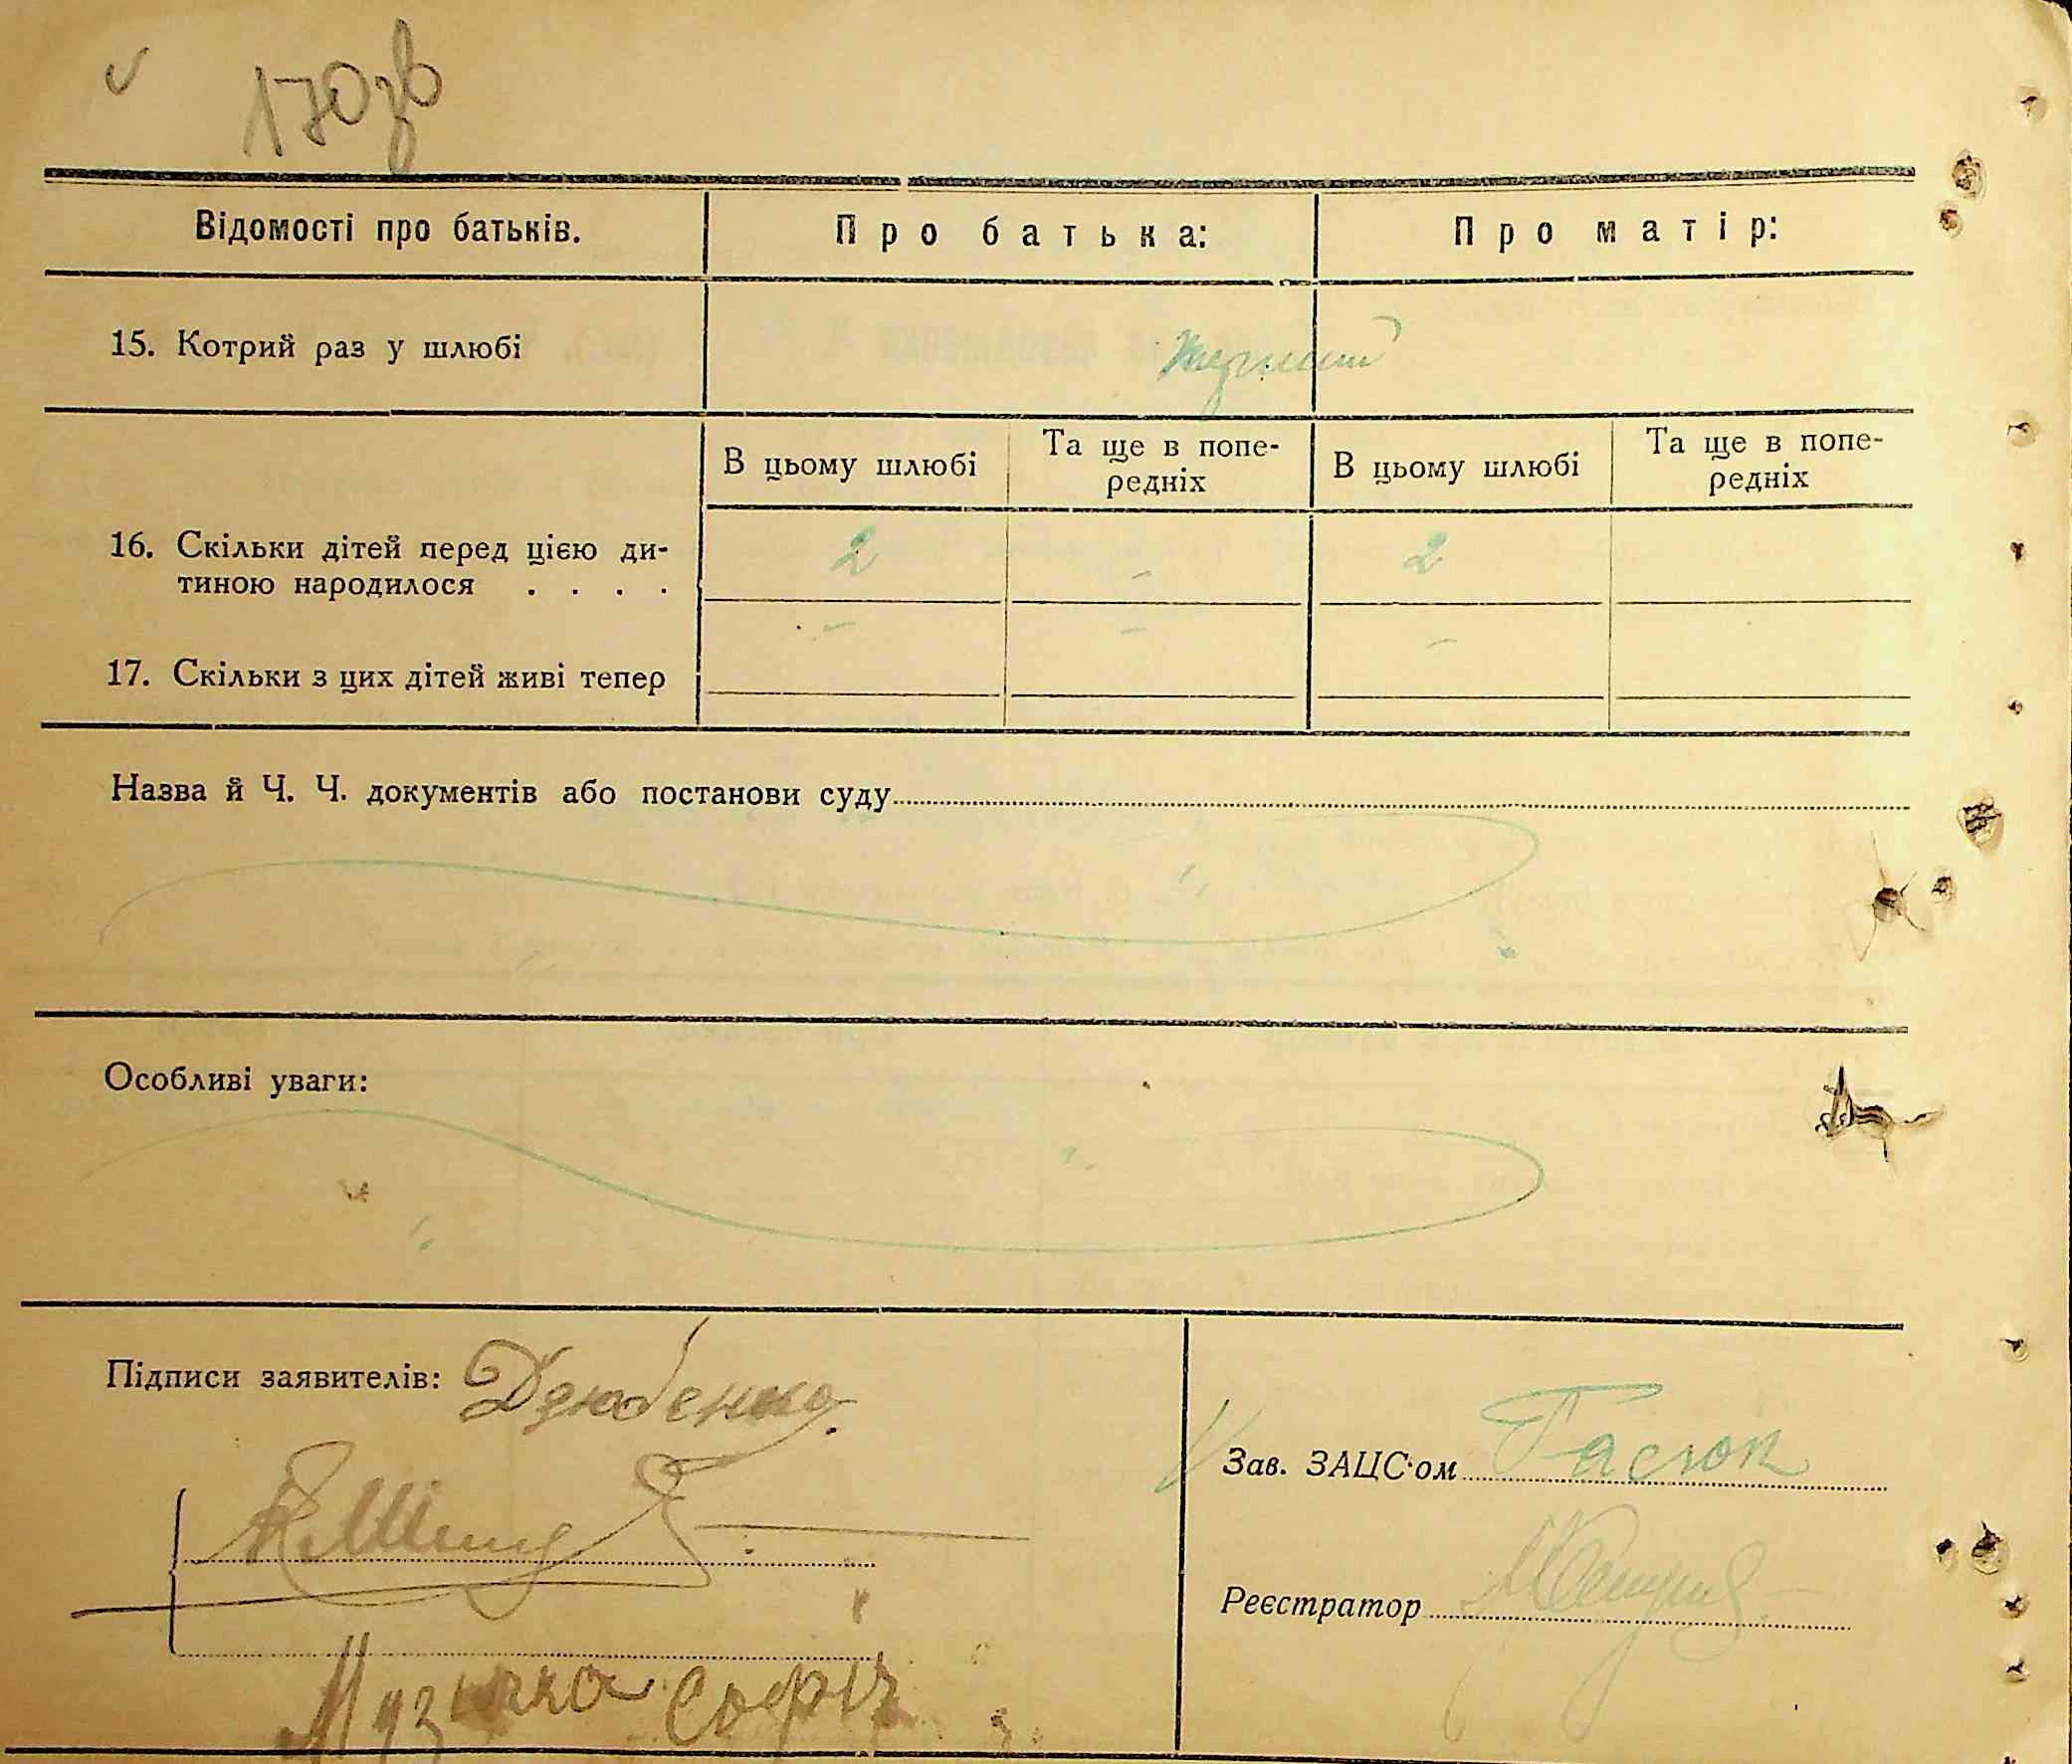 170зв
Відомості про батьків. Про батька: Про матір:
15. Котрий раз у шлюбі перший
В цьому шлюбі Та ще в попе-
редніх В цьому шлюбі Та ще в попе-
редніх
16. Скільки дітей перед цією ди- 2 - 2
тиною народилося . . . .
- - -
17. Скільки з цих дітей живі тепер
Назва й Ч. Ч. документів або постанови суду
Особливі уваги:
Підписи заявителів: Дзюбенко
Зав. ЗАЦС‧ом
Реєстратор
Музычка Софія